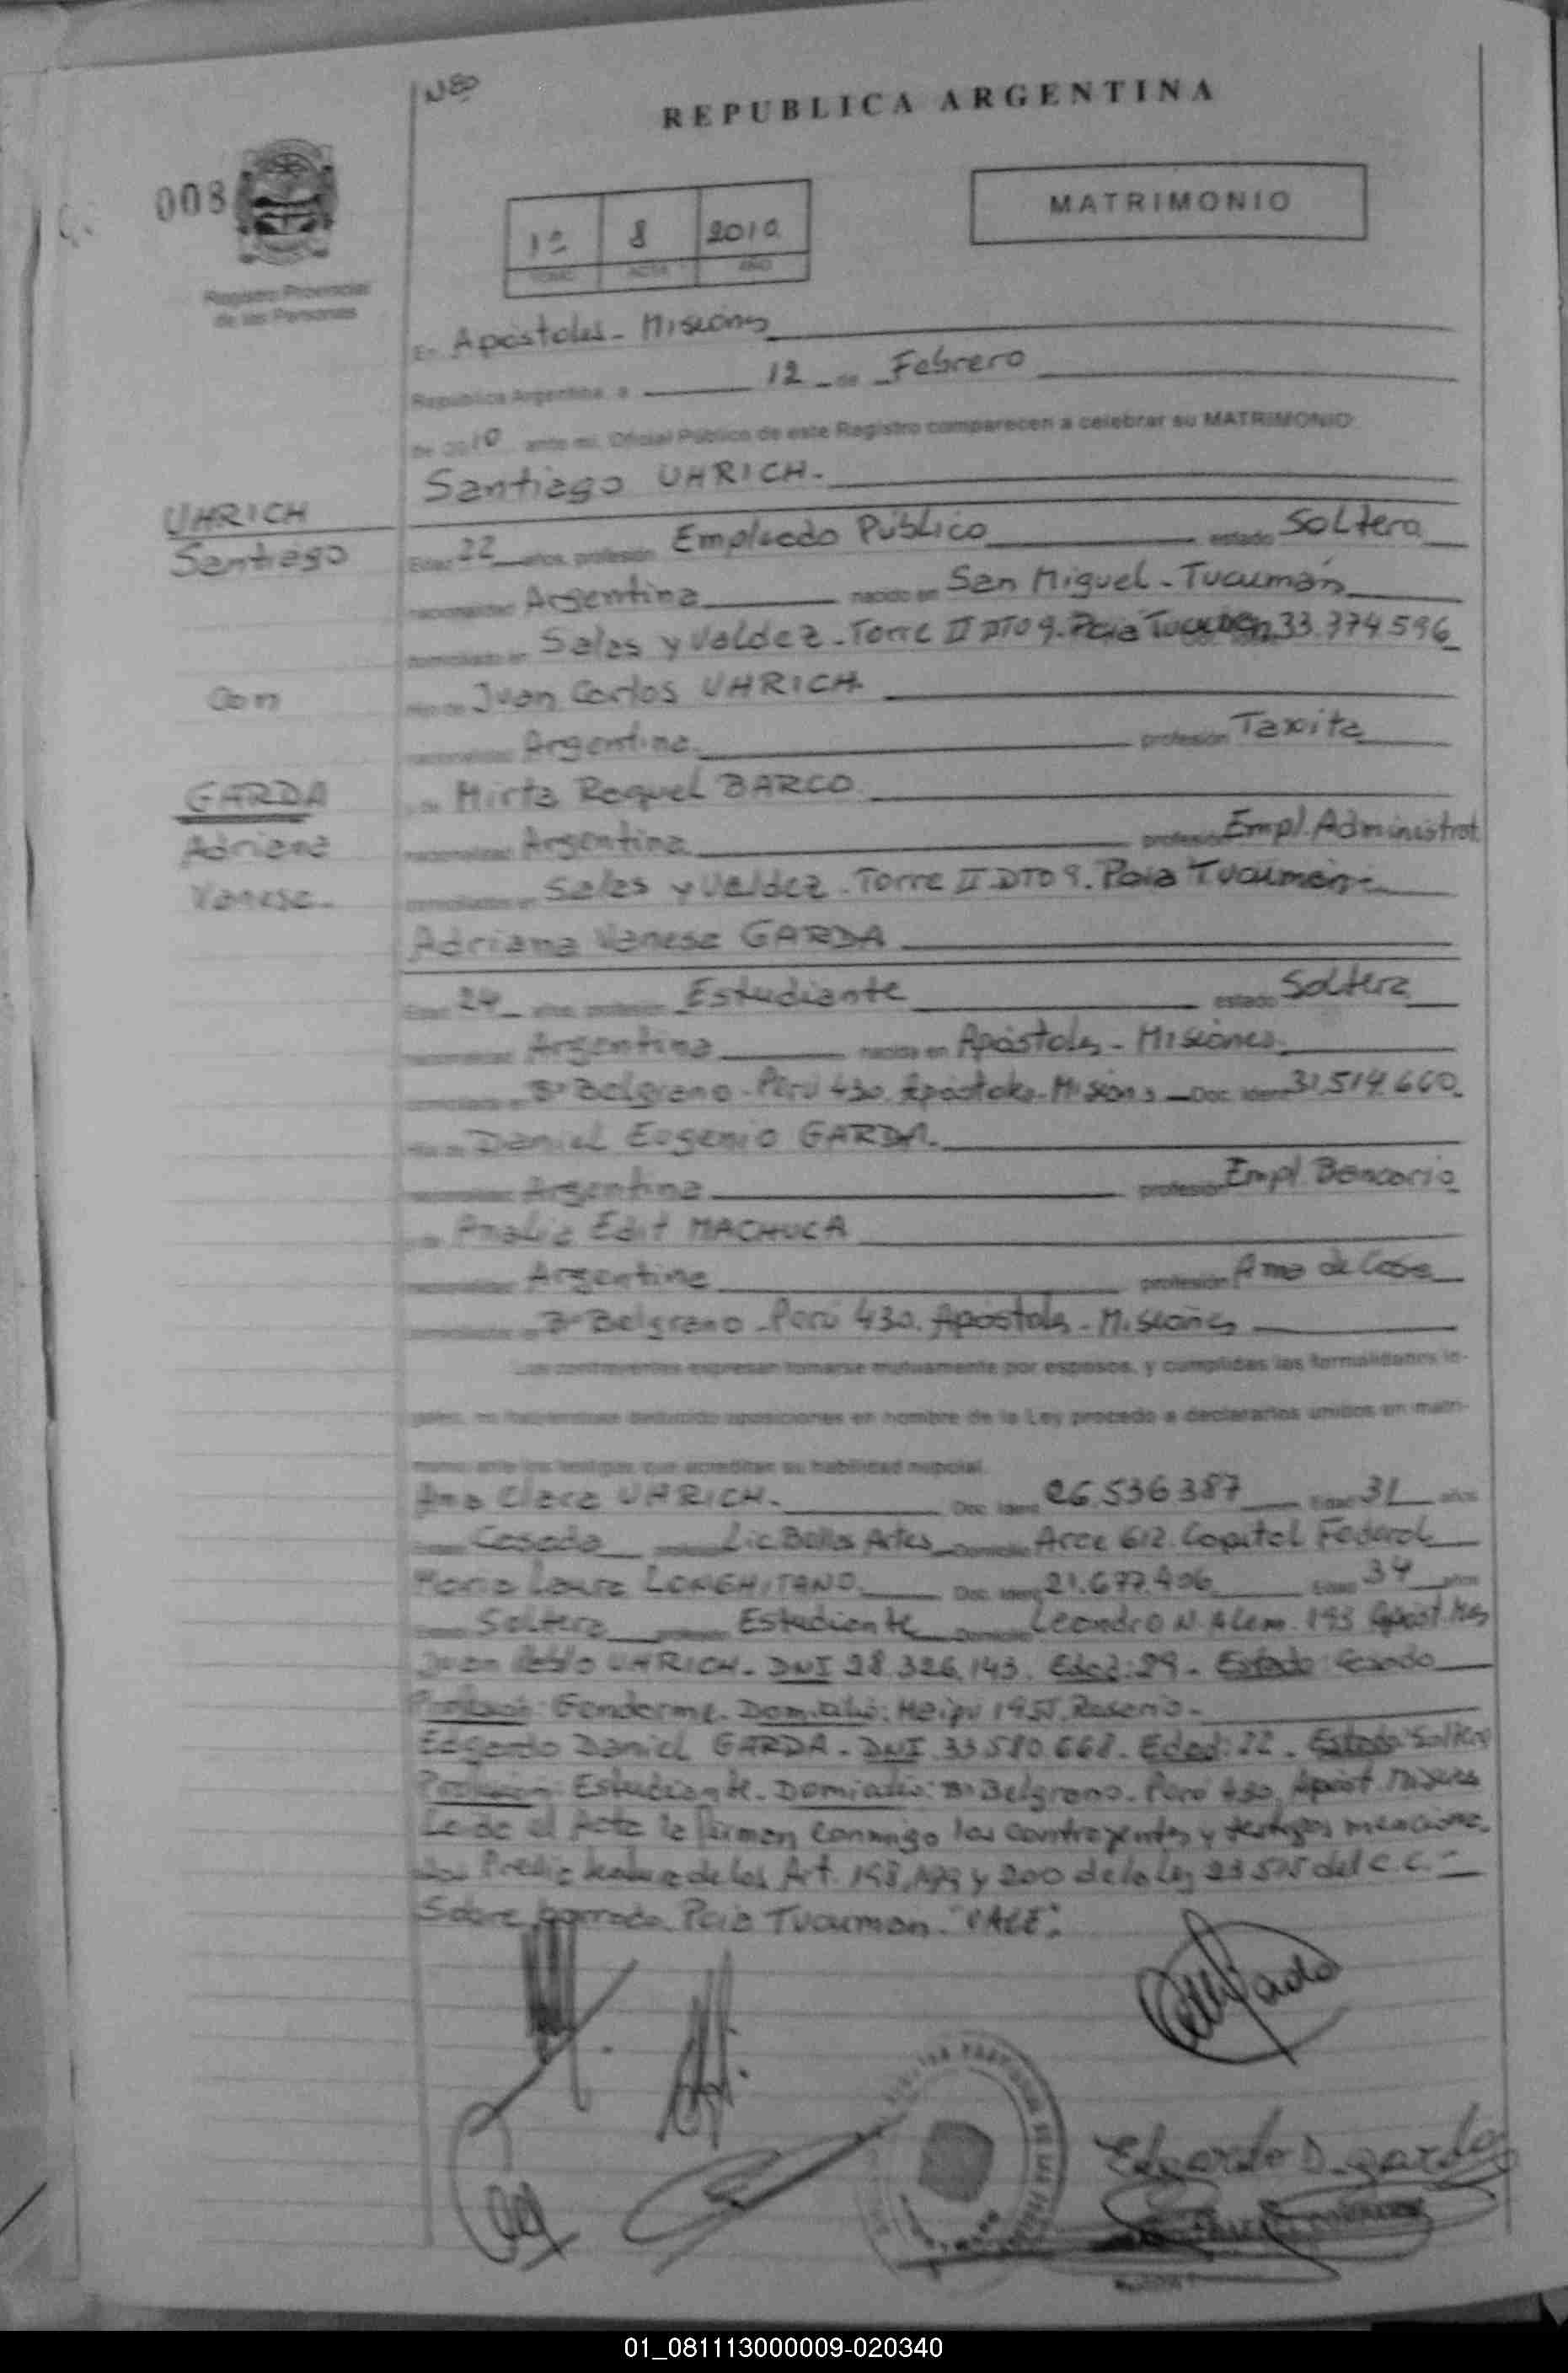 Nº 8
REPUBLICA ARGENTINA
008
MATRIMONIO
1º 8 2010
TOMO ACTA AÑO
Registro Provincial
de las Personas
En Apóstoles - Misiones
República Argentina, a 12 de Febrero
de 2010 ante mí, Oficial Público de este Registro comparecen a celebrar su MATRIMONIO
Santiago UHRICH.
UHRICH
Santiago
Edad 22 años, profesión Empleado Público estado Soltero
nacionalidad Argentina nacido en San Miguel - Tucumán
domiciliado en Salas y Valdez - Torre II DTO 9. Pcia Tucumán 33.374.596
Con
hijo de Juan Carlos UHRICH
nacionalidad Argentina profesión Taxita
GARDA
Adriana
Vanesa.
y de Mirta Raquel BARCO
nacionalidad Argentina profesión Empl. Administrat.
domiciliados en Salas y Valdez - Torre II DTO 9. Pcia Tucumán
Adriana Vanesa GARDA
Edad 24 años, profesión Estudiante estado Soltera
nacionalidad Argentina nacida en Apóstoles - Misiones.
domiciliada en Bº Belgrano - Perú 430. Apóstoles - Misiones Doc. Ident. 31.514.660
hija de Daniel Eugenio GARDA.
nacionalidad Argentina profesión Empl. Bancario
y de Analia Edit MACHUCA
nacionalidad Argentina profesión Ama de Casa
domiciliados en Bº Belgrano - Perú 430. Apóstoles - Misiones
Los contrayentes expresan tomarse mutuamente por esposos, y cumplidas las formalidades le-
gales, no habiéndose deducido oposiciones en nombre de la Ley procedo a declararlos unidos en matri-
monio ante los testigos que acreditan su habilidad nupcial.
Ana Clara UHRICH. Doc. Ident. 26.536.387 Edad 31 años
Casada Lic. Bellas Artes Domicilio Arce 612. Capital Federal
Maria Laura LONGHITANO. Doc. Ident. 21.677.406 Edad 34 años
Soltera Estudiante Domicilio Leandro N. Alem. 193 Apóst. Mnes
Juan Pablo UHRICH - DNI 28.326.143. Edad: 29 - Estado: Casado
Profesión: Gendarme. Domicilio: Maipú 1955. Rosario.
Edgardo Daniel GARDA - DNI 33.580.668 - Edad: 22 - Estado: Soltero
Profesión: Estudiante. Domicilio: Bº Belgrano. Perú 430. Apóst. Misiones
Leida el Acta la firman conmigo los contrayentes y testigos menciona-
dos. Previa lectura de los Art. 198, 199 y 200 de la Ley 23.515 del C.C.
Sobre borrado. Pcia Tucuman. "VALE".
Edgardo D. Garda
01_081113000009-020340